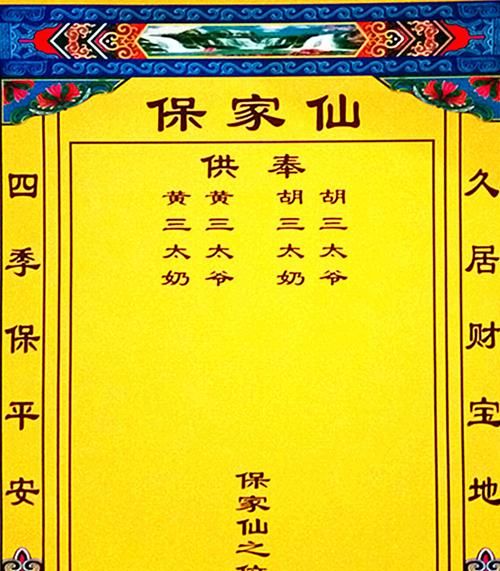 保家仙
供奉
胡三太爷
胡三太奶
黄三太爷
黄三太奶
保家仙之
久居财宝地
四季保平安